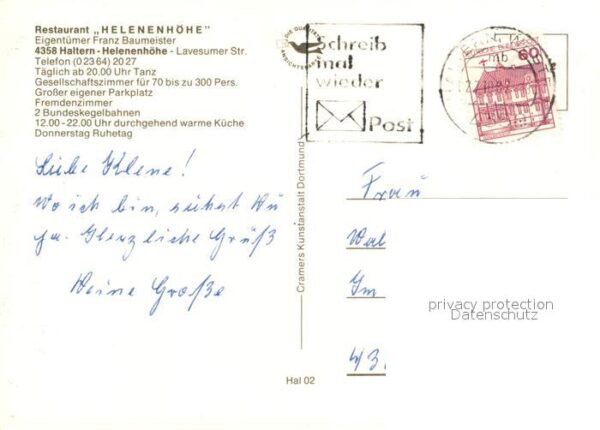 Restaurant „HELENENHÖHE"
Eigentümer Franz Baumeister
4358 Haltern - Helenenhöhe - Lavesumer Str.
Telefon (0 23 64) 20 27
Täglich ab 20.00 Uhr Tanz
Gesellschaftszimmer für 70 bis zu 300 Pers.
Großer eigener Parkplatz
Fremdenzimmer
2 Bundeskegelbahnen
12.00 - 22.00 Uhr durchgehend warme Küche
Donnerstag Ruhetag
Liebe Kleine!
Wo ich bin, siehst Du
ja. Herzliche Grüß
Deine Große
Cramers Kunstanstalt Dortmund
Hal 02
Schreib
mal
wieder
Post
60
Frau
Im
43
privacy protection
Datenschutz